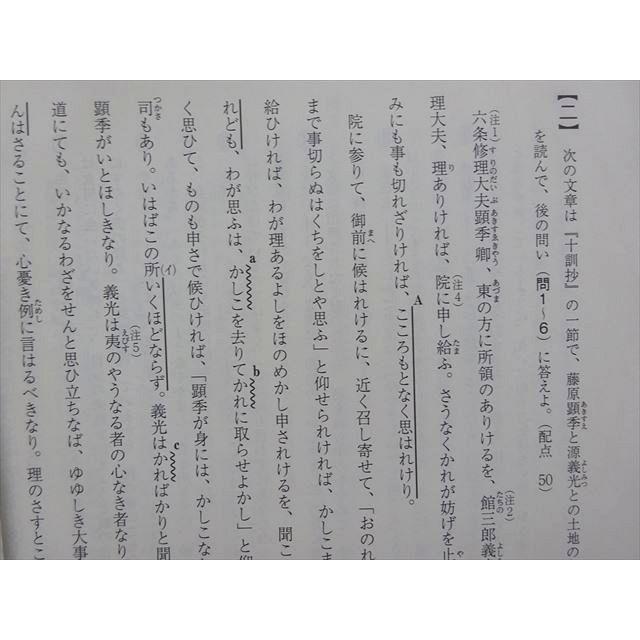 【二】 次の文章は『十訓抄』の一節で、藤原顕季と源義光との土地の
を読んで、後の問い(問1～6)に答えよ。(配点 50)
六条修理大夫顕季卿、東の方に所領のありけるを、館三郎義
理大夫、理ありければ、院に申し給ふ。さうなくかれが妨げを止
みにも事も切れざりければ、こころもとなく思はれけり。
院に参りて、御前に候はれけるに、近く召し寄せて、「おのれ
まで事切らぬはくちをしとや思ふ」と仰せられければ、かしこま
給ひければ、わが理あるよしをほのめかし申されけるを、聞こ
れども、わが思ふは、かしこを去りてかれに取らせよかし」と
く思ひて、ものも申さで候ひければ、「顕季が身には、かしこな
司もあり。いはばこの所いくほどならず。義光はかればかりと聞
顕季がいとほしきなり。義光は夷のやうなる者の心なき者なり
道にても、いかなるわざをせんと思ひ立ちなば、ゆゆしき大事
んはさることにて、心憂き例に言はるべきなり。理のさすとこ